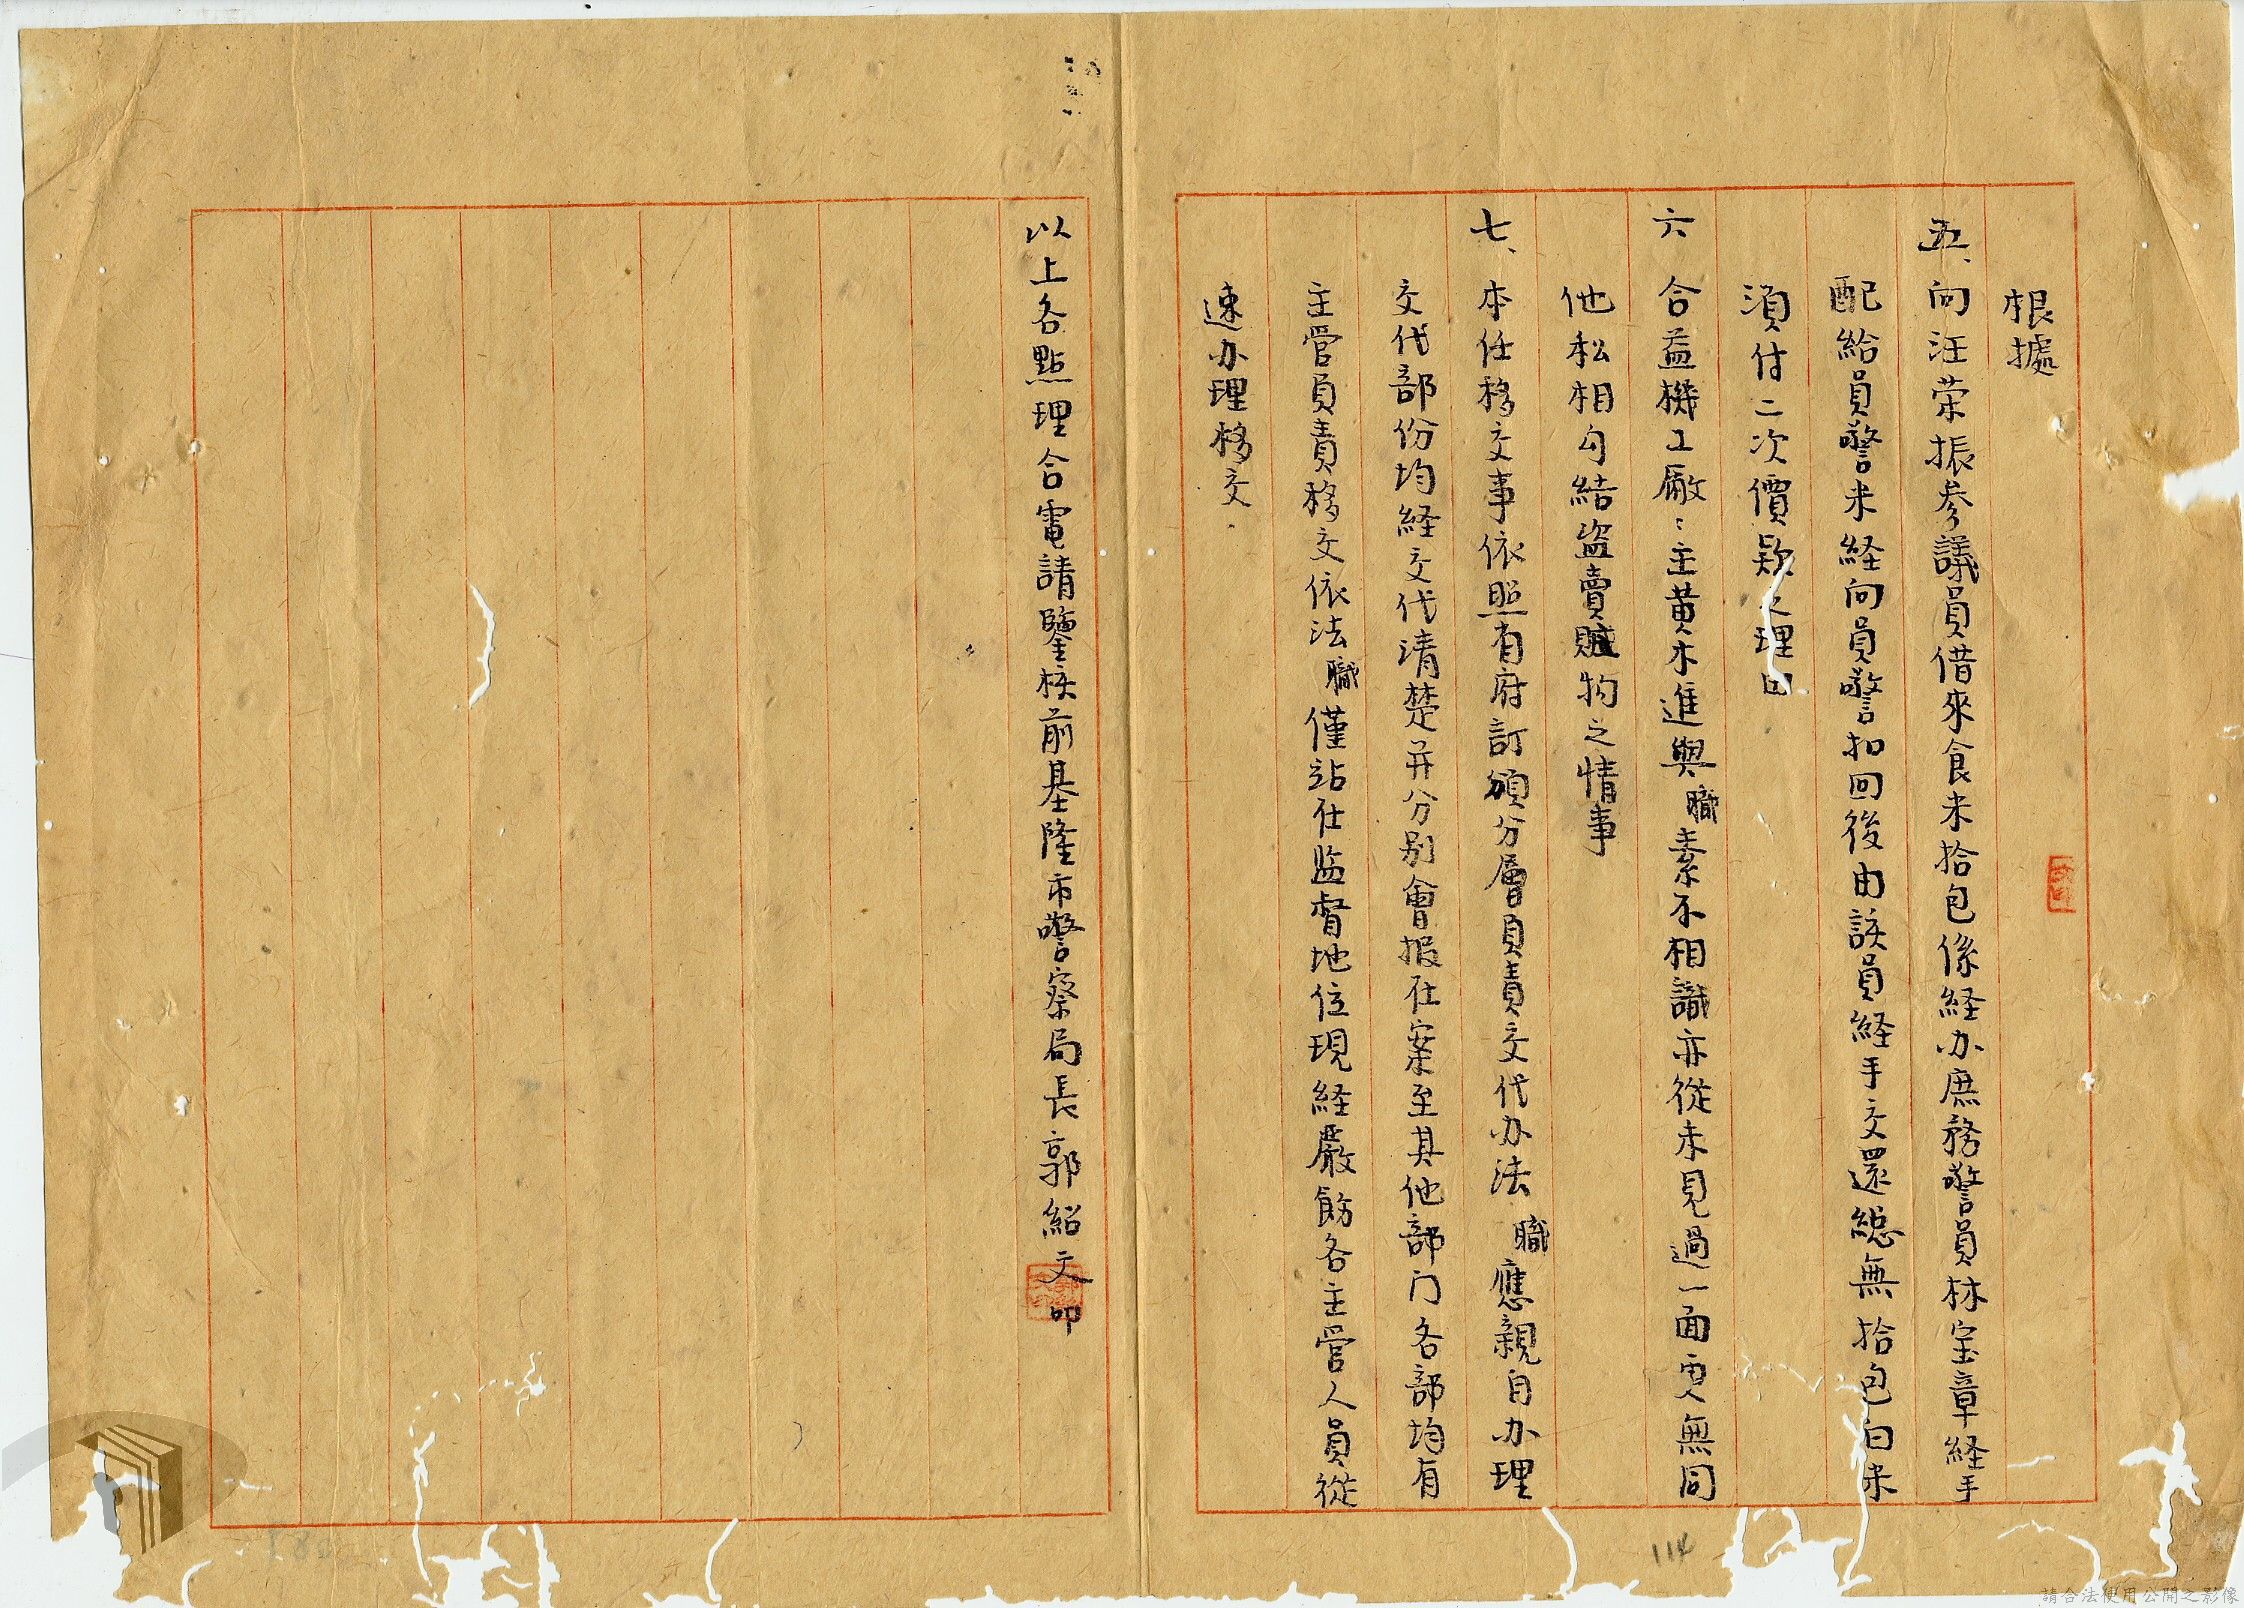 根據
五、向汪荣振参議員借來食米拾包係経办庶務警員林宝章経手
配給員警米経向員警扣回後由該員経手交還総無拾包白米
須付二次價款之理由
六 合益機工廠：主黄木進與職素不相識亦從未見過一面更無同
他私相勾結盜賣贓物之情事
七、本任移交事依照省府訂頒分層負責交代办法職應親自办理
交代部份均経交代清楚并分别會报在案至其他部门各部均有
主管負責移交依法職僅站在监督地位現経嚴飭各主管人員從
速办理移交．
以上各點理合電請鑒核前基隆市警察局長郭紹文叩
114
請合法使用公開之影像